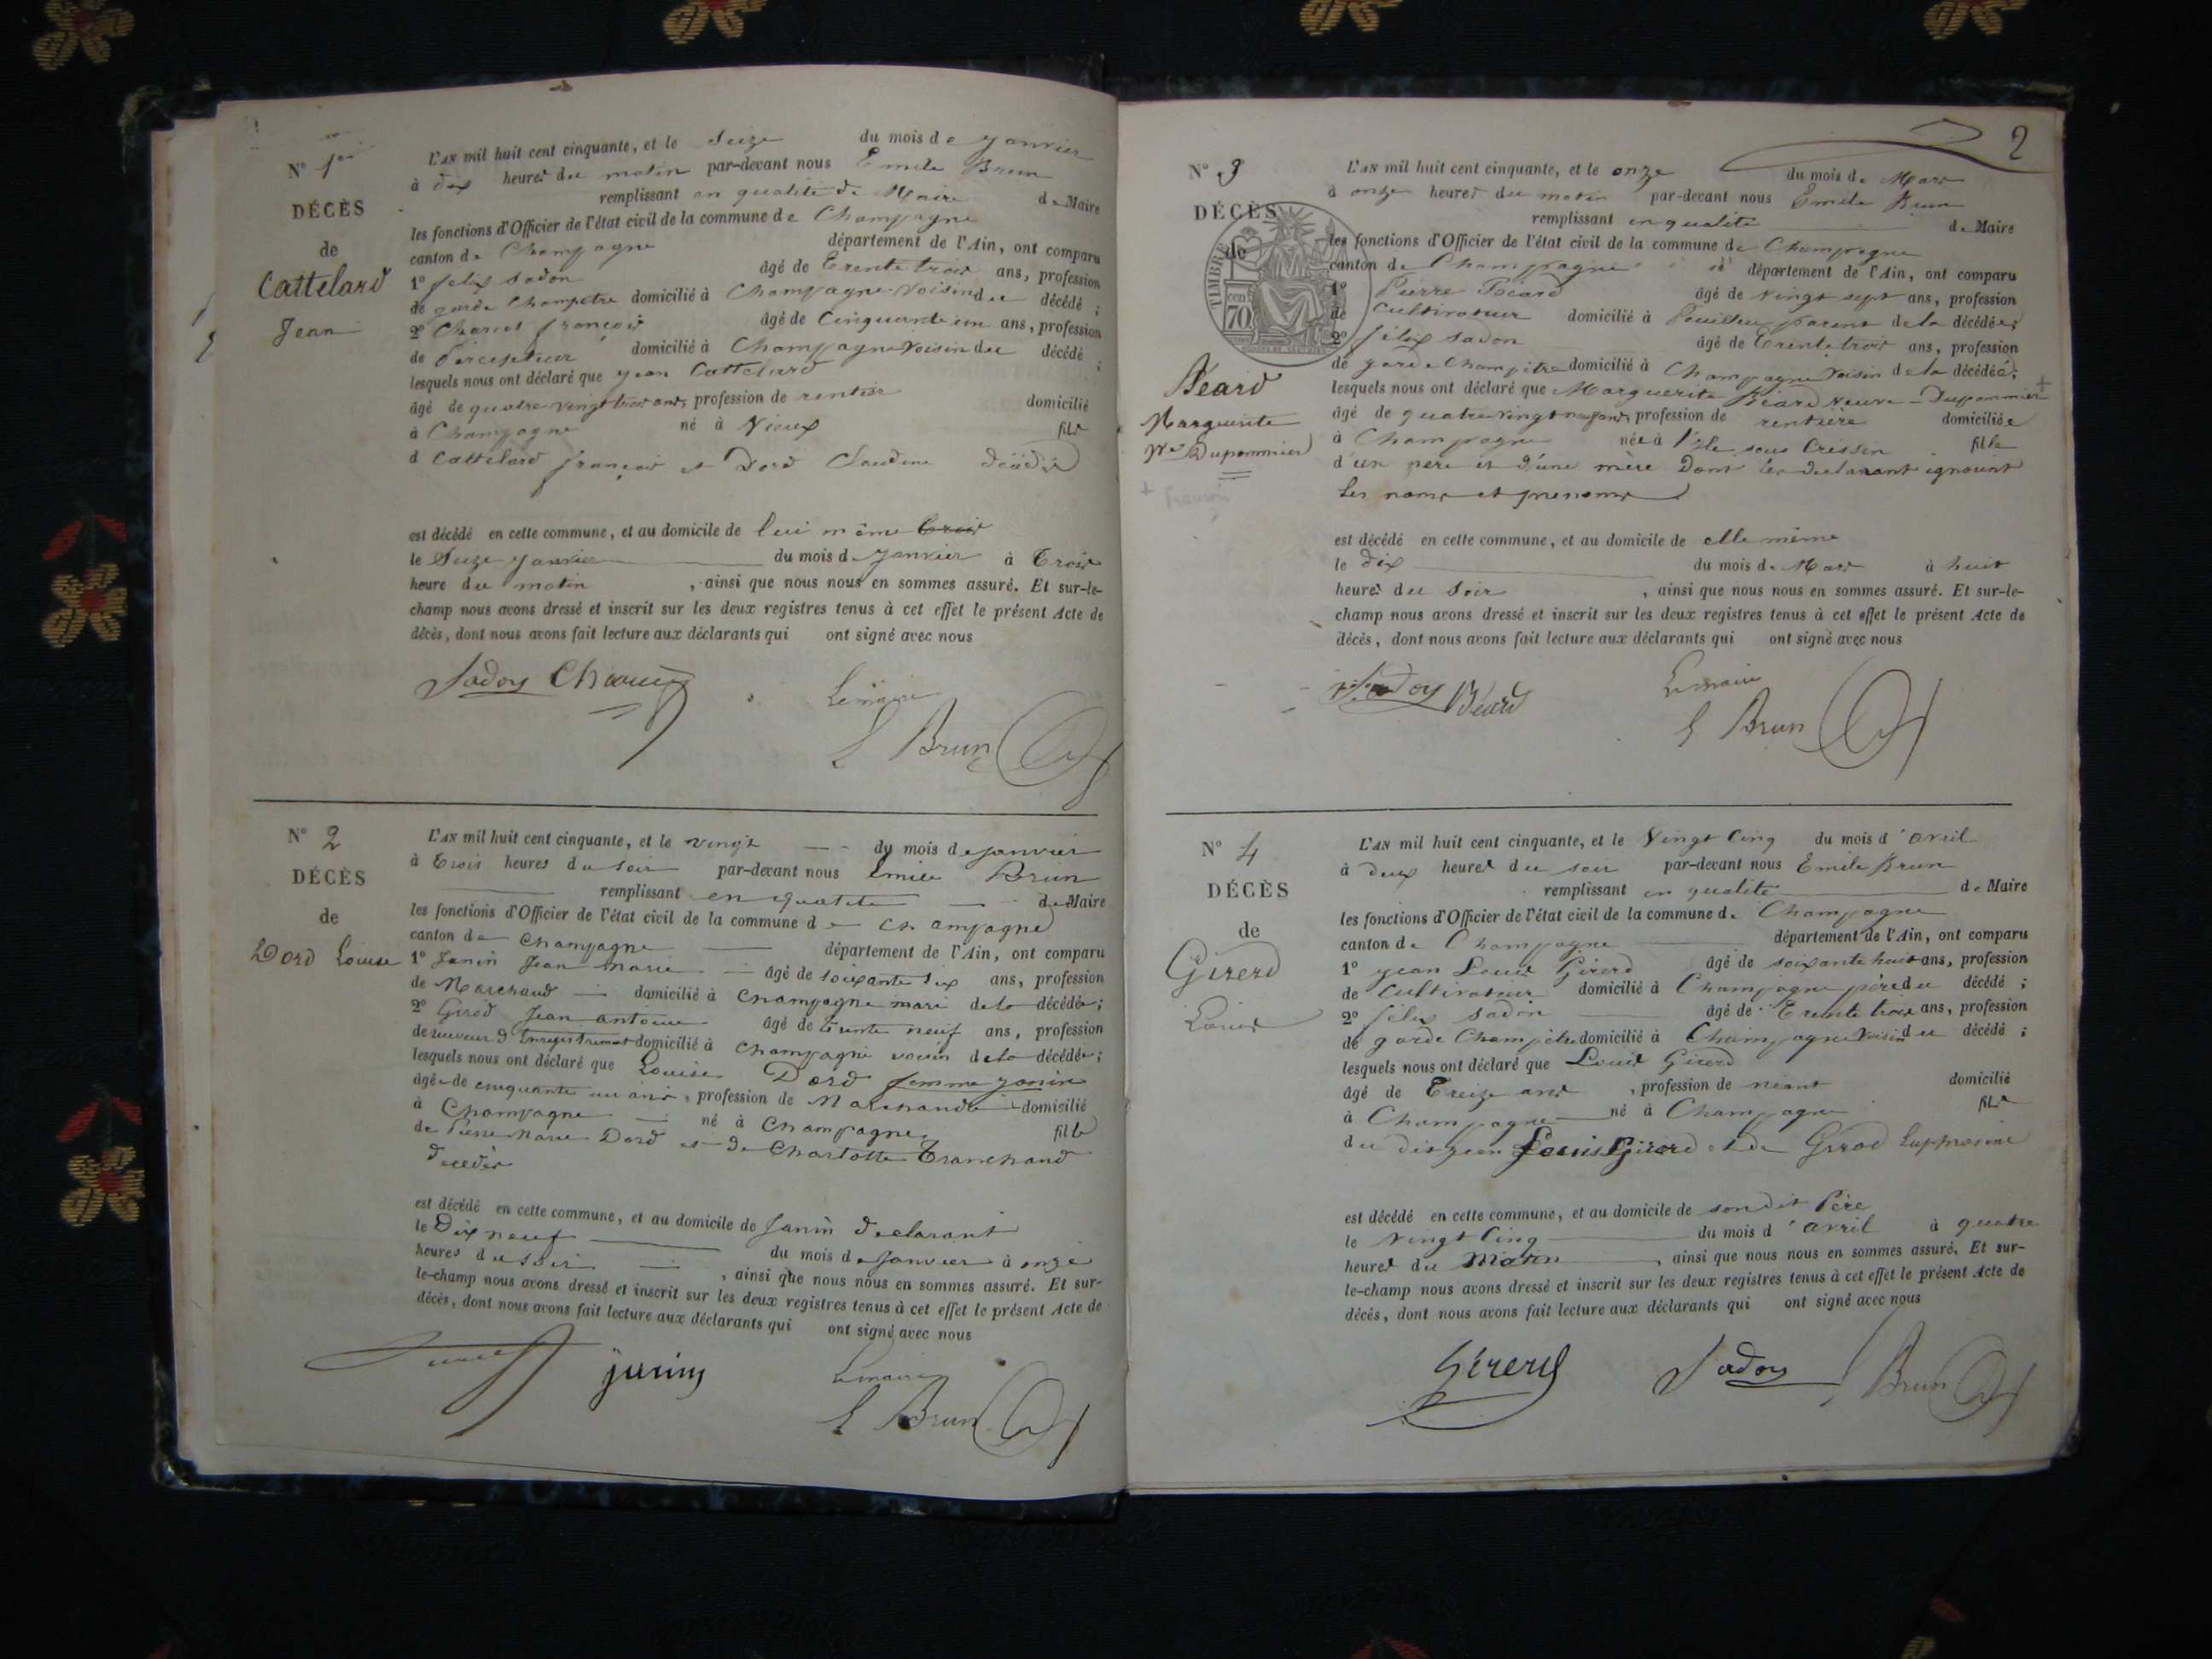 N° 1er
DÉCÈS
de
Cattelard
Jean
L'AN mil huit cent cinquante, et le seize du mois de janvier
à dix heures du matin par-devant nous Emile Brun
remplissant en qualité de Maire de Maire
les fonctions d'Officier de l'état civil de la commune de Champagne
canton de Champagne département de l'Ain, ont comparu
1° felix Sadon âgé de trente trois ans, profession
de garde Champetre domicilié à Champagne voisin du décédé ;
2° françois âgé de Cinquante un ans, profession
de Percepteur domicilié à Champagne voisin du décédé ;
lesquels nous ont déclaré que jean Cattelard
âgé de quatre vingt trois ans, profession de rentier domicilié
à Champagne né à Vieux fils
d Cattelard françois et Dord Claudine
est décédé en cette commune, et au domicile de lui même trois
le Seize janvier du mois de janvier à trois
heure du matin , ainsi que nous nous en sommes assuré. Et sur-le-
champ nous avons dressé et inscrit sur les deux registres tenus à cet effet le présent Acte de
décès, dont nous avons fait lecture aux déclarants qui ont signé avec nous
Sadon
Le maire
E Brun
N° 2
DÉCÈS
de
Dord Louise
L'AN mil huit cent cinquante, et le vingt du mois de janvier
à trois heures du soir par-devant nous Emile Brun
remplissant en qualité de Maire
les fonctions d'Officier de l'état civil de la commune de Champagne
canton de Champagne département de l'Ain, ont comparu
1° Janin Jean Marie âgé de soixante six ans, profession
de Marchand domicilié à Champagne mari de la décédée ;
2° Girod Jean antoine âgé de trente neuf ans, profession
de receveur d'Enregistrement domicilié à Champagne voisin de la décédée ;
lesquels nous ont déclaré que Louise Dord femme Janin
âgée de cinquante un ans, profession de Marchande domicilié
à Champagne né à Champagne fille
de Pierre Marie Dord et de Charlotte Tranchand
décédés
est décédé en cette commune, et au domicile de Janin déclarant
le Dix neuf du mois de Janvier à onze
heures du soir , ainsi que nous nous en sommes assuré. Et sur-
le-champ nous avons dressé et inscrit sur les deux registres tenus à cet effet le présent Acte de
décès, dont nous avons fait lecture aux déclarants qui ont signé avec nous
janin
Le maire
E Brun
2
N° 3
DÉCÈS
de
TIMBRE
70
Béard
Marguerite
Ve Dupommier
L'AN mil huit cent cinquante, et le onze du mois de Mars
à onze heures du matin par-devant nous Emile Brun
remplissant en qualité de Maire
les fonctions d'Officier de l'état civil de la commune de Champagne
canton de Champagne département de l'Ain, ont comparu
1° Pierre Béard âgé de vingt sept ans, profession
de Cultivateur domicilié à parent de la décédée;
2° félix Sadon âgé de trente trois ans, profession
de garde Champêtre domicilié à Champagne voisin de la décédée;
lesquels nous ont déclaré que Marguerite Béard Veuve Dupommier +
âgé de quatre vingt neuf ans, profession de rentière domiciliée
à Champagne née à l'Ile sous Cressin fille
d'un père et d'une mère dont les déclarant ignorent
les noms et prenoms
est décédé en cette commune, et au domicile de elle même
le dix du mois de Mars à huit
heures du soir , ainsi que nous nous en sommes assuré. Et sur-le-
champ nous avons dressé et inscrit sur les deux registres tenus à cet effet le présent Acte de
décès, dont nous avons fait lecture aux déclarants qui ont signé avec nous
Sadon Béard
Le maire
E Brun
N° 4
DÉCÈS
de
Girerd
Louis
L'AN mil huit cent cinquante, et le Vingt Cinq du mois d'avril
à deux heures du soir par-devant nous Emile Brun
remplissant en qualité de Maire
les fonctions d'Officier de l'état civil de la commune de Champagne
canton de Champagne département de l'Ain, ont comparu
1° jean Louis Girerd âgé de soixante huit ans, profession
de Cultivateur domicilié à Champagne père du décédé ;
2° félix Sadon âgé de trente trois ans, profession
de garde Champêtre domicilié à Champagne voisin du décédé ;
lesquels nous ont déclaré que Louis Girerd
âgé de treize ans , profession de néant domicilié
à Champagne né à Champagne fils
du dit jean Louis Girerd et de Girod Euphrosine
est décédé en cette commune, et au domicile de son dit Père
le vingt cinq du mois d'avril à quatre
heures du Matin , ainsi que nous nous en sommes assuré. Et sur-
le-champ nous avons dressé et inscrit sur les deux registres tenus à cet effet le présent Acte de
décès, dont nous avons fait lecture aux déclarants qui ont signé avec nous
Girerd Sadon E Brun